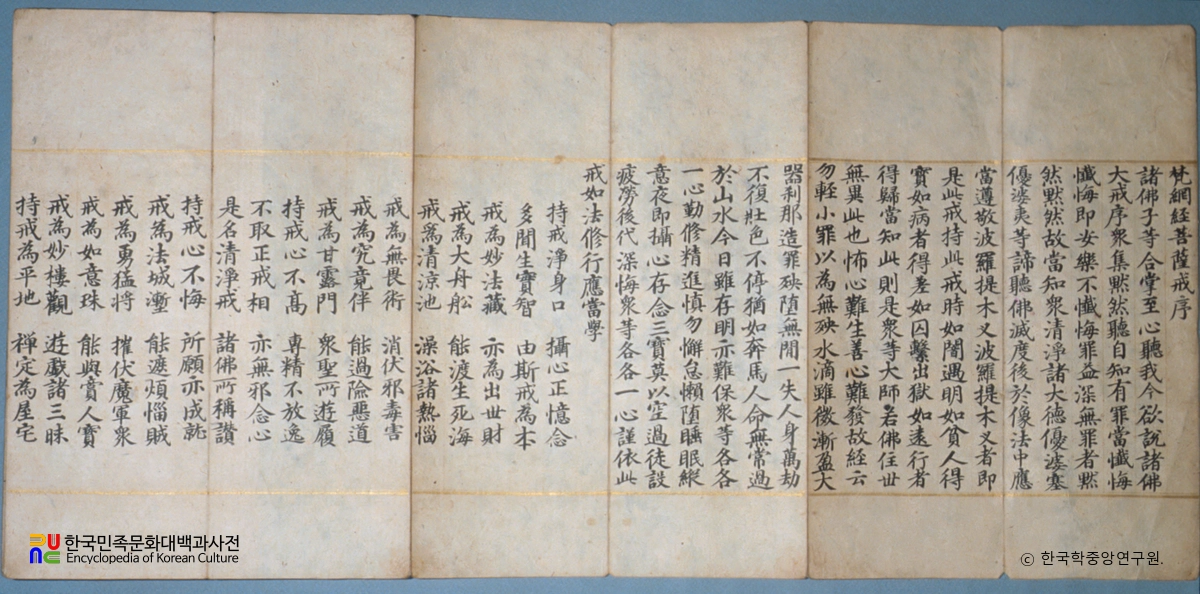 梵網経菩薩戒序
諸佛子等合掌至心聽我今欲說諸佛
大戒序衆集黙然聽自知有罪當懺悔
懺悔即安樂不懺悔罪益深無罪者黙
然黙然故當知衆清淨諸大德優婆塞
優婆夷等諦聽佛滅度後於像法中應
當遵敬波羅提木叉波羅提木叉者即
是此戒持此戒時如闇遇明如貧人得
寶如病者得差如囚繫出獄如遠行者
得歸當知此則是衆等大師若佛住世
無異此也怖心難生善心難發故経云
勿軽小罪以為無殃水滴雖微漸盈大
器刹那造罪殃堕無間一失人身萬劫
不復壯色不停猶如奔馬人命無常過
於山水今日雖存明亦難保衆等各各
一心勤修精進慎勿懈怠懶堕睡眠縱
意夜即攝心存念三寶莫以空過徒設
疲勞後代深悔衆等各各一心謹依此
戒如法修行應當學
持戒淨身口 攝心正憶念
多聞生寶智 由斯戒為本
戒為妙法藏 亦為出世財
戒為大舟舩 能渡生死海
戒為清涼池 澡浴諸熱惱
戒為無畏術 消伏邪毒害
戒為究竟伴 能過險惡道
戒為甘露門 衆聖所遊履
持戒心不髙 専精不放逸
不取正戒相 亦無邪念心
是名清淨戒 諸佛所稱讚
持戒心不悔 所願亦成就
戒為法城壍 能遮煩惱賊
戒為勇猛将 摧伏魔軍衆
戒為如意珠 能與賁人寶
戒為妙樓觀 遊戲諸三昧
持戒為平地 禪定為屋宅
한국민족문화대백과사전
Encyclopedia of Korean Culture
ⓒ 한국학중앙연구원.